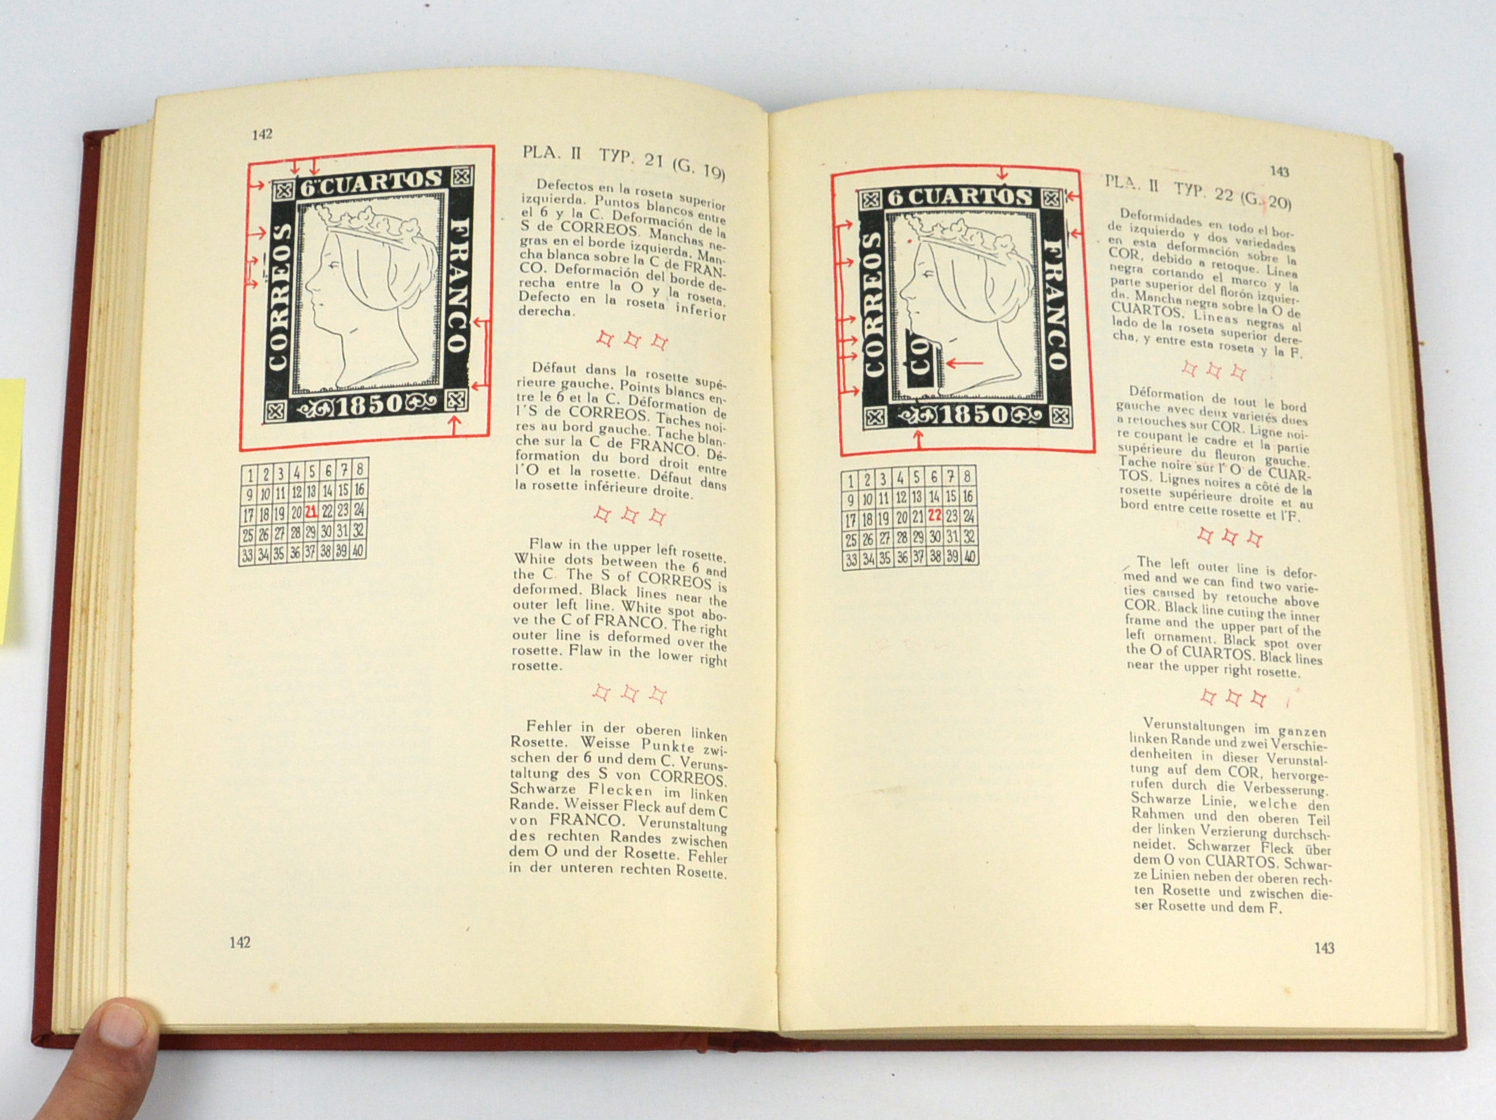 142
6 CUARTOS
CORREOS
FRANCO
1850
1 2 3 4 5 6 7 8
9 10 11 12 13 14 15 16
17 18 19 20 21 22 23 24
25 26 27 28 29 30 31 32
33 34 35 36 37 38 39 40
PLA. II TYP. 21 (G. 19)
Defectos en la roseta superior
izquierda. Puntos blancos entre
el 6 y la C. Deformación de la
S de CORREOS. Manchas ne-
gras en el borde izquierda. Man-
cha blanca sobre la C de FRAN-
CO. Deformación del borde de-
recha entre la O y la roseta.
Defecto en la roseta inferior
derecha.
Défaut dans la rosette supé-
rieure gauche. Points blancs en-
tre le 6 et la C. Déformation de
l'S de CORREOS. Taches noi-
res au bord gauche. Tache blan-
che sur la C de FRANCO. Dé-
formation du bord droit entre
l'O et la rosette. Défaut dans
la rosette inférieure droite.
Flaw in the upper left rosette.
White dots between the 6 and
the C. The S of CORREOS is
deformed. Black lines near the
outer left line. White spot abo-
ve the C of FRANCO. The right
outer line is deformed over the
rosette. Flaw in the lower right
rosette.
Fehler in der oberen linken
Rosette. Weisse Punkte zwi-
schen der 6 und dem C. Veruns-
taltung des S von CORREOS.
Schwarze Flecken im linken
Rande. Weisser Fleck auf dem C
von FRANCO. Verunstaltung
des rechten Randes zwischen
dem O und der Rosette. Fehler
in der unteren rechten Rosette.
142
143
6 CUARTOS
CORREOS
FRANCO
CO
1850
1 2 3 4 5 6 7 8
9 10 11 12 13 14 15 16
17 18 19 20 21 22 23 24
25 26 27 28 29 30 31 32
33 34 35 36 37 38 39 40
PLA. II TYP. 22 (G. 20)
Deformidades en todo el bor-
de izquierdo y dos variedades
en esta deformación sobre la
COR, debido a retoque. Línea
negra cortando el marco y la
parte superior del florón izquier-
da. Mancha negra sobre la O de
CUARTOS. Líneas negras al
lado de la roseta superior dere-
cha, y entre esta roseta y la F.
Déformation de tout le bord
gauche avec deux varietés dues
a retouches sur COR. Ligne noi-
re coupant le cadre et la partie
supérieure du fleuron gauche.
Tache noire sur l' O de CUAR-
TOS. Lignes noires a côté de la
rosette supérieure droite et au
bord entre cette rosette et l'F.
The left outer line is defor-
med and we can find two varie-
ties caused by retouche above
COR. Black line cuting the inner
frame and the upper part of the
left ornament. Black spot over
the O of CUARTOS. Black lines
near the upper right rosette.
Verunstaltungen im ganzen
linken Rande und zwei Verschie-
denheiten in dieser Verunstal-
tung auf dem COR, hervorge-
rufen durch die Verbesserung.
Schwarze Linie, welche den
Rahmen und den oberen Teil
der linken Verzierung durchsch-
neidet. Schwarzer Fleck über
dem O von CUARTOS. Schwar-
ze Linien neben der oberen rech-
ten Rosette und zwischen die-
ser Rosette und dem F.
143